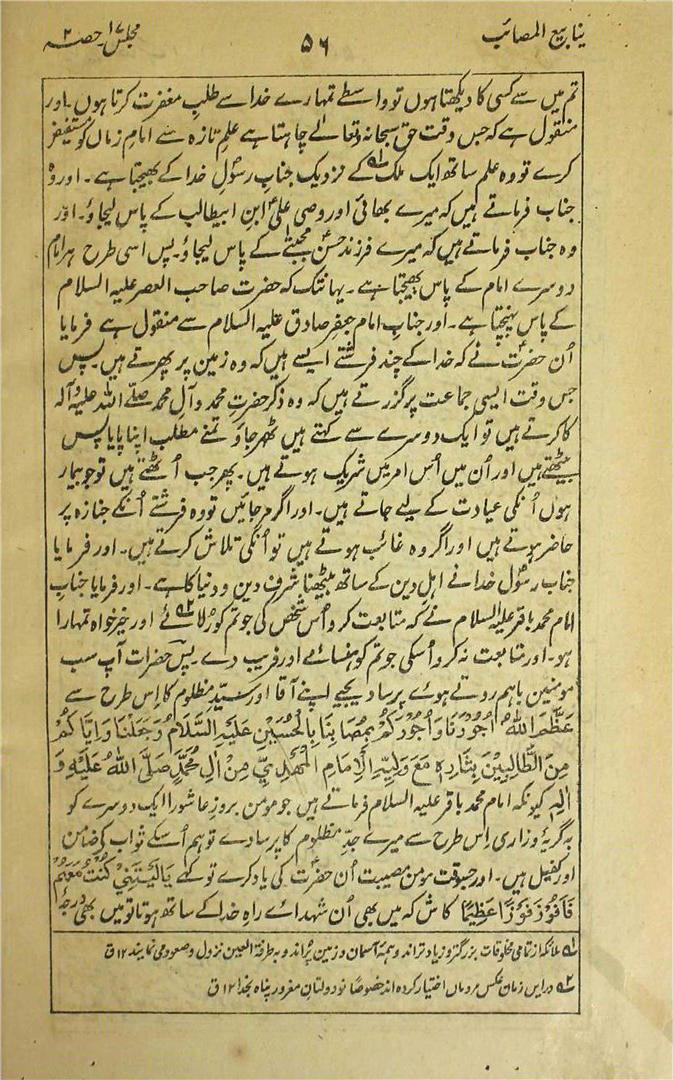 ینابیع المصائب
۵۶
مجلس ۱۷ حصہ ۲
تم میں سے کسی کا دیکھتا ہوں تو واسطے تمہارے خدا سے طلبِ مغفرت کرتا ہوں۔ اور
منقول ہے کہ جس وقت حق سبحانہ وتعالےٰ چاہتا ہے علم تازہ سے امام زماں کو مستفیض
کرے تو وہ علم ساتھ ایک ملک ؎۱ کے نزدیک جناب رسولِ خدا کے بھیجتا ہے۔ اور وہ
جناب فرماتے ہیں کہ میرے بھائی اور وصی علیؑ ابن ابیطالب کے پاس لیجاؤ۔ اور
وہ جناب فرماتے ہیں کہ میرے فرزند حسنؑ مجتبےٰ کے پاس لیجاؤ۔ پس اسی طرح ہر امام
دوسرے امام کے پاس بھیجتا ہے۔ یہانتک کہ حضرت صاحب العصر علیہ السلام
کے پاس پہنچتا ہے۔ اور جناب امام جعفر صادق علیہ السلام سے منقول ہے فرمایا
اُن حضرتؑ نے کہ خدا کے چند فرشتے ایسے ہیں کہ وہ زمین پر پھرتے ہیں۔ پس
جس وقت ایسی جماعت پر گزرتے ہیں کہ وہ ذکر حضرت محمد وآل محمد صلے اللہ علیہ وآلہ
کا کرتے ہیں تو ایک دوسرے سے کہتے ہیں ٹھہر جاؤ تمنے مطلب اپنا پایا پس
بیٹھتے ہیں اور اُن میں اُس امر میں شریک ہوتے ہیں۔ پھر جب اُٹھتے ہیں تو جو بیمار
ہوں اُنکی عیادت کے لیے جاتے ہیں۔ اور اگر مر جائیں تو وہ فرشتے اُنکے جنازہ پر
حاضر ہوتے ہیں اور اگر وہ غائب ہوتے ہیں تو اُنکی تلاش کرتے ہیں۔ اور فرمایا
جناب رسولِ خدا نے اہلِ دین کے ساتھ بیٹھنا شرف دین و دنیا کا ہے۔ اور فرمایا جناب
امام محمد باقر علیہ السلام نے کہ متابعت کرو اُس شخص کی جو تم کو رُلائے ؎۲ اور خیر خواہ تمہارا
ہو۔ اور متابعت نہ کرو اُسکی جو تم کو ہنسائے اور فریب دے۔ پس حضرات آپ سب
مومنین باہم روتے ہوئے پرسا دیجیے اپنے آقا اور سیّدِ مظلوم کا اِس طرح سے
عَظَّمَ اللهُ اُجُوْرَنَا وَاُجُوْرَكُمْ بِمُصَابِنَا بِالْحُسَيْنِ عَلَيْهِ السَّلَامُ وَجَعَلَنَا وَاِيَّاكُمْ
مِنَ الطَّالِبِيْنَ بِثَارِهٖ مَعَ وَلِيِّهِ الْاِمَامِ الْمَهْدِيِّ مِنْ اٰلِ مُحَمَّدٍ صَلَّى اللهُ عَلَيْهِ وَ
اٰلِهٖ کیونکہ امام محمد باقر علیہ السلام فرماتے ہیں جو مومن بروز عاشورا ایک دوسرے کو
بہ گریہ وزاری اِس طرح سے میرے جدِّ مظلوم کا پرسا دے تو ہم اُسکے ثواب کو ضامن
اور کفیل ہیں۔ اور جسوقت مومن مصیبت اُن حضرتؑ کی یاد کرے تو کہے يَالَيْتَنِيْ كُنْتُ مَعَهُمْ
فَاَفُوْزَ فَوْزًا عَظِيْمًا کاش کہ میں بھی اُن شہدائے راہ خدا کے ساتھ ہوتا تو میں بھی درجۂ
؎۱ ملائکہ از تمامی مخلوقات بزرگتر و زیادتر اند و ہمہ آسمان و زمین پر اند و بہ طرفۃ العین نزول و صعود می نمایند ۱۲ ق
؎۲ در ایں زمان عکس مردماں اختیار کردہ اند خصوصًا نو دولتان مغرور پناہ بخدا ۱۲ ق